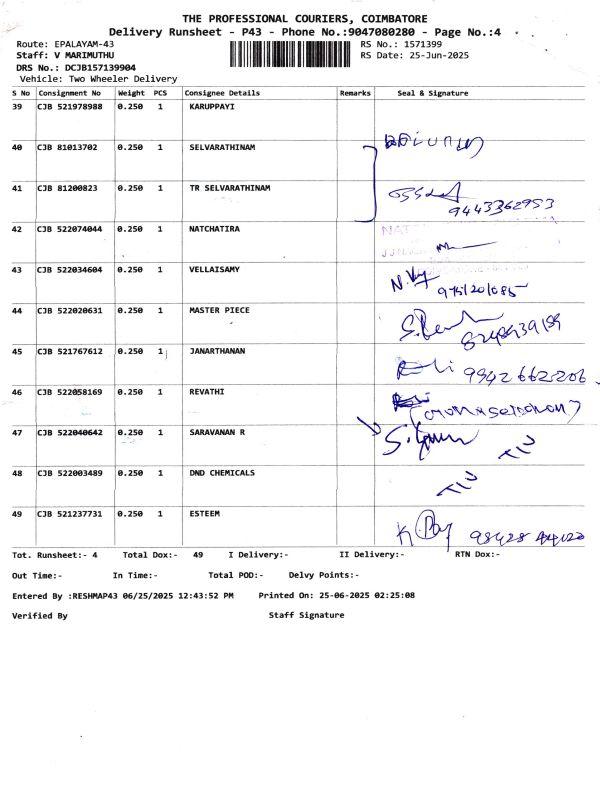 THE PROFESSIONAL COURIERS, COIMBATORE
Delivery Runsheet - P43 - Phone No.:9047080280 - Page No.:4
Route: EPALAYAM-43 RS No.: 1571399
Staff: V MARIMUTHU RS Date: 25-Jun-2025
DRS No.: DCJB157139904
Vehicle: Two Wheeler Delivery
S No Consignment No Weight PCS Consignee Details Remarks Seal & Signature
39 CJB 521978988 0.250 1 KARUPPAYI
40 CJB 81013702 0.250 1 SELVARATHINAM
41 CJB 81200823 0.250 1 TR SELVARATHINAM
9443362953
42 CJB 522074044 0.250 1 NATCHATIRA
43 CJB 522034604 0.250 1 VELLAISAMY
44 CJB 522020631 0.250 1 MASTER PIECE
45 CJB 521767612 0.250 1 JANARTHANAN
9942662206
46 CJB 522058169 0.250 1 REVATHI
47 CJB 522040642 0.250 1 SARAVANAN R
48 CJB 522003489 0.250 1 DND CHEMICALS
49 CJB 521237731 0.250 1 ESTEEM
98428
Tot. Runsheet:- 4 Total Dox:- 49 I Delivery:- II Delivery:- RTN Dox:-
Out Time:- In Time:- Total POD:- Delvy Points:-
Entered By :RESHMAP43 06/25/2025 12:43:52 PM Printed On: 25-06-2025 02:25:08
Verified By Staff Signature